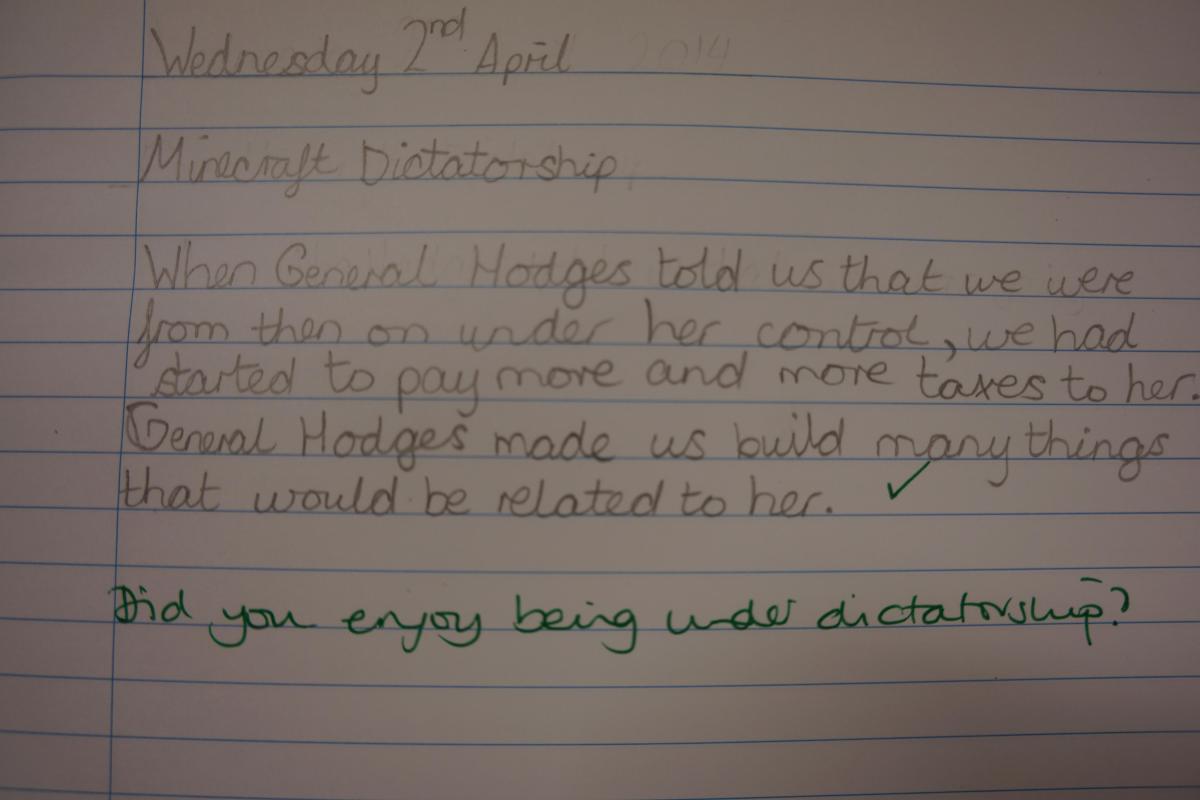 Wednesday 2nd April 2014
Minecraft Dictatorship
When General Hodges told us that we were
from then on under her control, we had
started to pay more and more taxes to her.
General Hodges made us build many things
that would be related to her. ✓
Did you enjoy being under dictatorship?